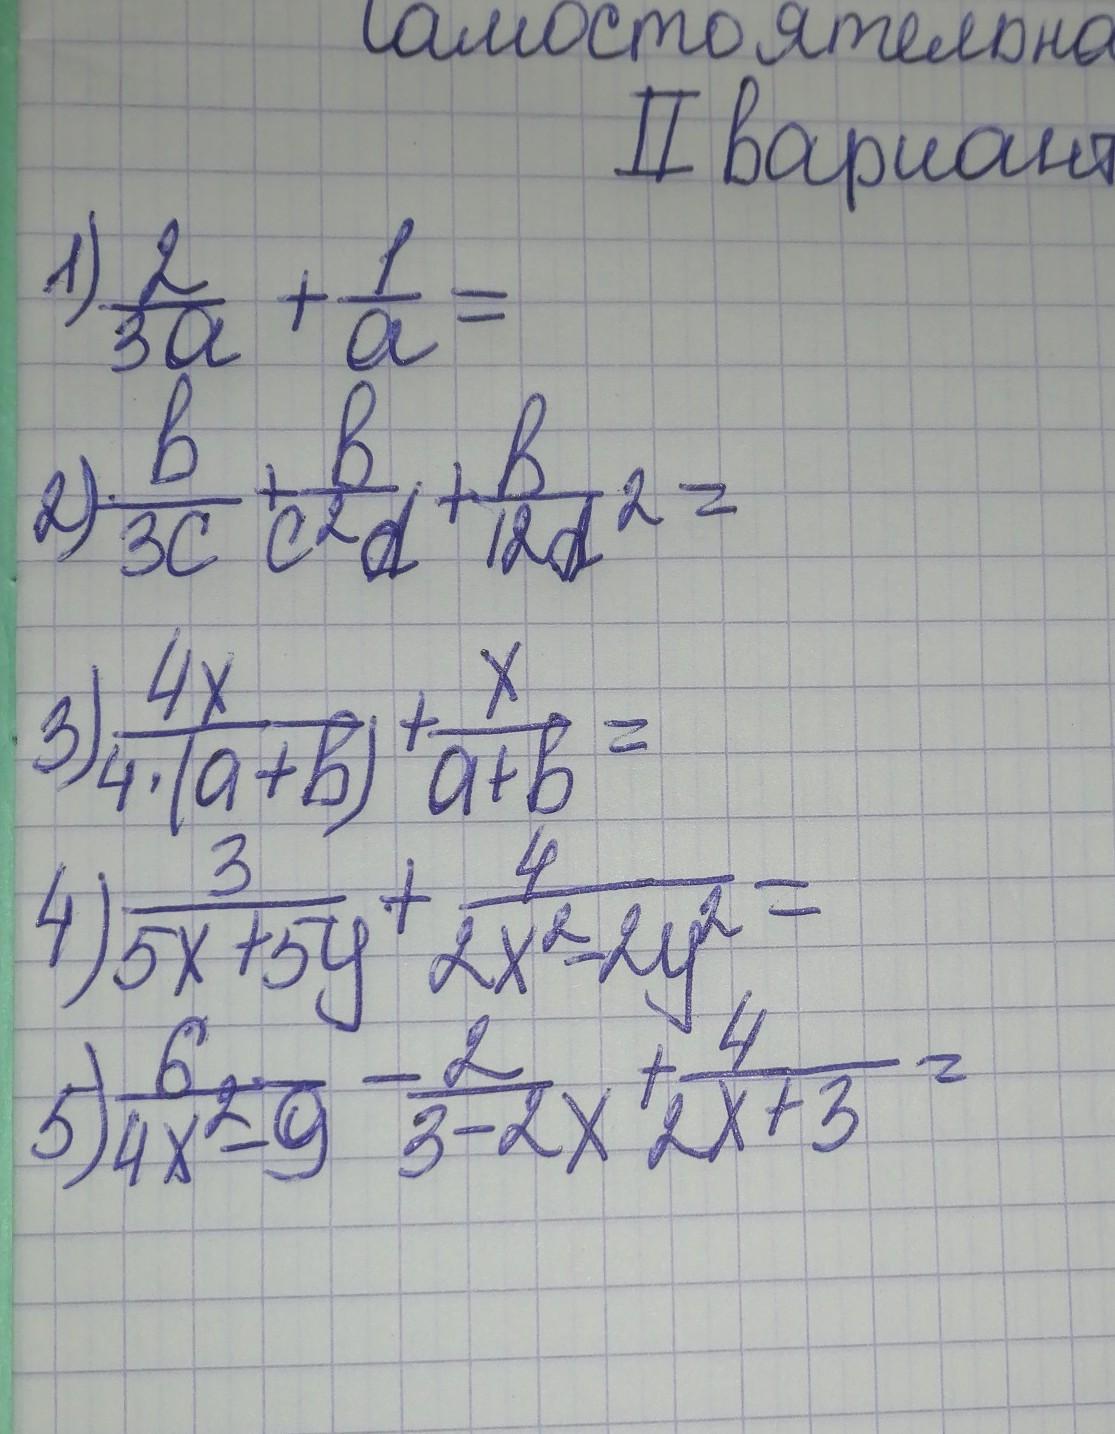 Самостоятельна
II вариант
1) 2/3a + 1/a =
2) b/3c + b/c²d + b/12d² =
3) 4x/4·(a+b) + x/a+b =
4) 3/5x+5y + 4/2x²-2y² =
5) 6/4x²-9 - 2/3-2x + 4/2x+3 =